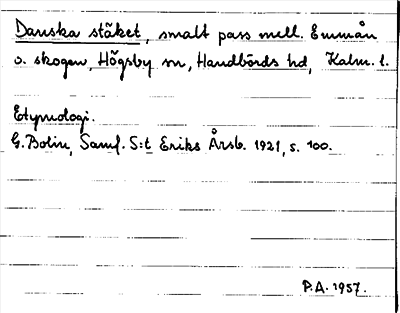 Danska stäket, smalt pass mell. Emmån
o. skogen, Högsby sn, Handbörds hd, Kalm. l.
Etymologi.
G. Bolin, Samf. S:t Eriks Årsb. 1921, s. 100.
P.A. 1957.